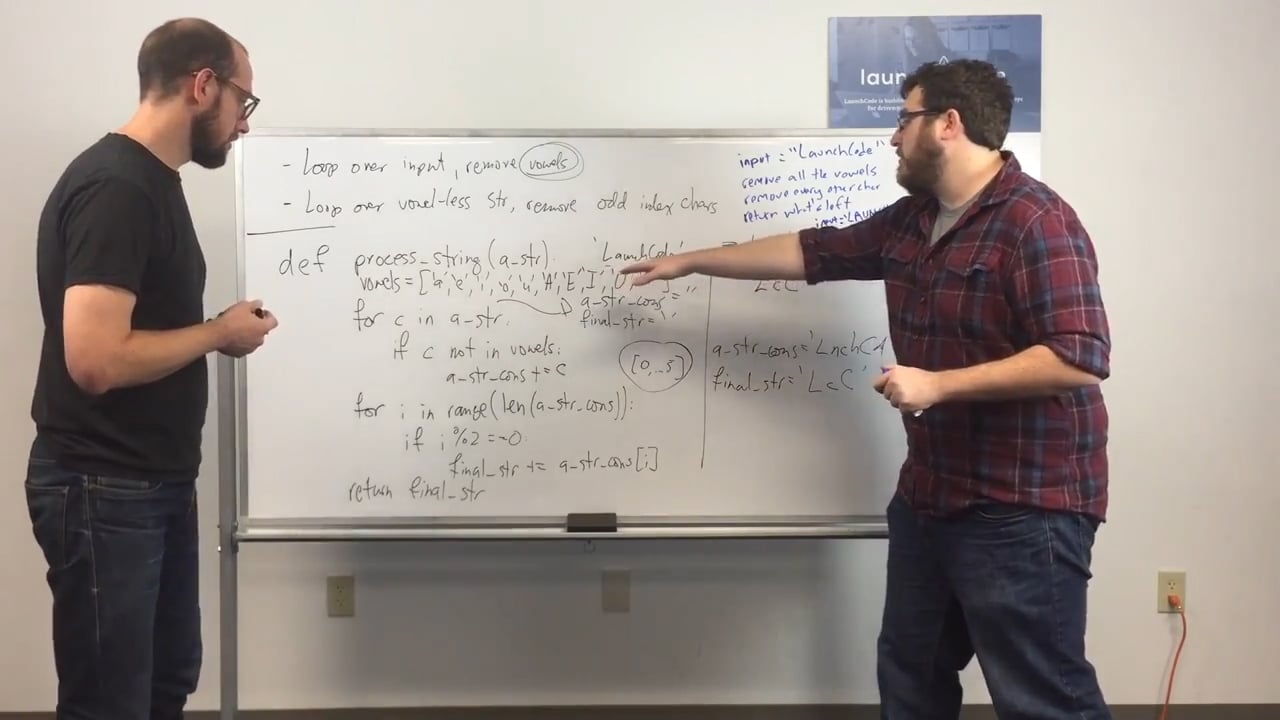 - Loop over input, remove vowels
- Loop over vowel-less str, remove odd index chars
def process_string(a_str):
'LaunchCode'
vowels = ['a','e','i','o','u','A','E','I','O'
a_str_cons = ''
for c in a_str:
final_str = ''
if c not in vowels:
a_str_cons += c
[0,..5]
for i in range(len(a_str_cons)):
if i %2 == 0:
final_str += a_str_cons[i]
return final_str
LcC
a-str-cons='LnchCd
final_str='LcC'
input = "LaunchCode"
remove all the vowels
remove every other char
return what's left
input='LAUNCH
laun
LaunchCode is
for driven